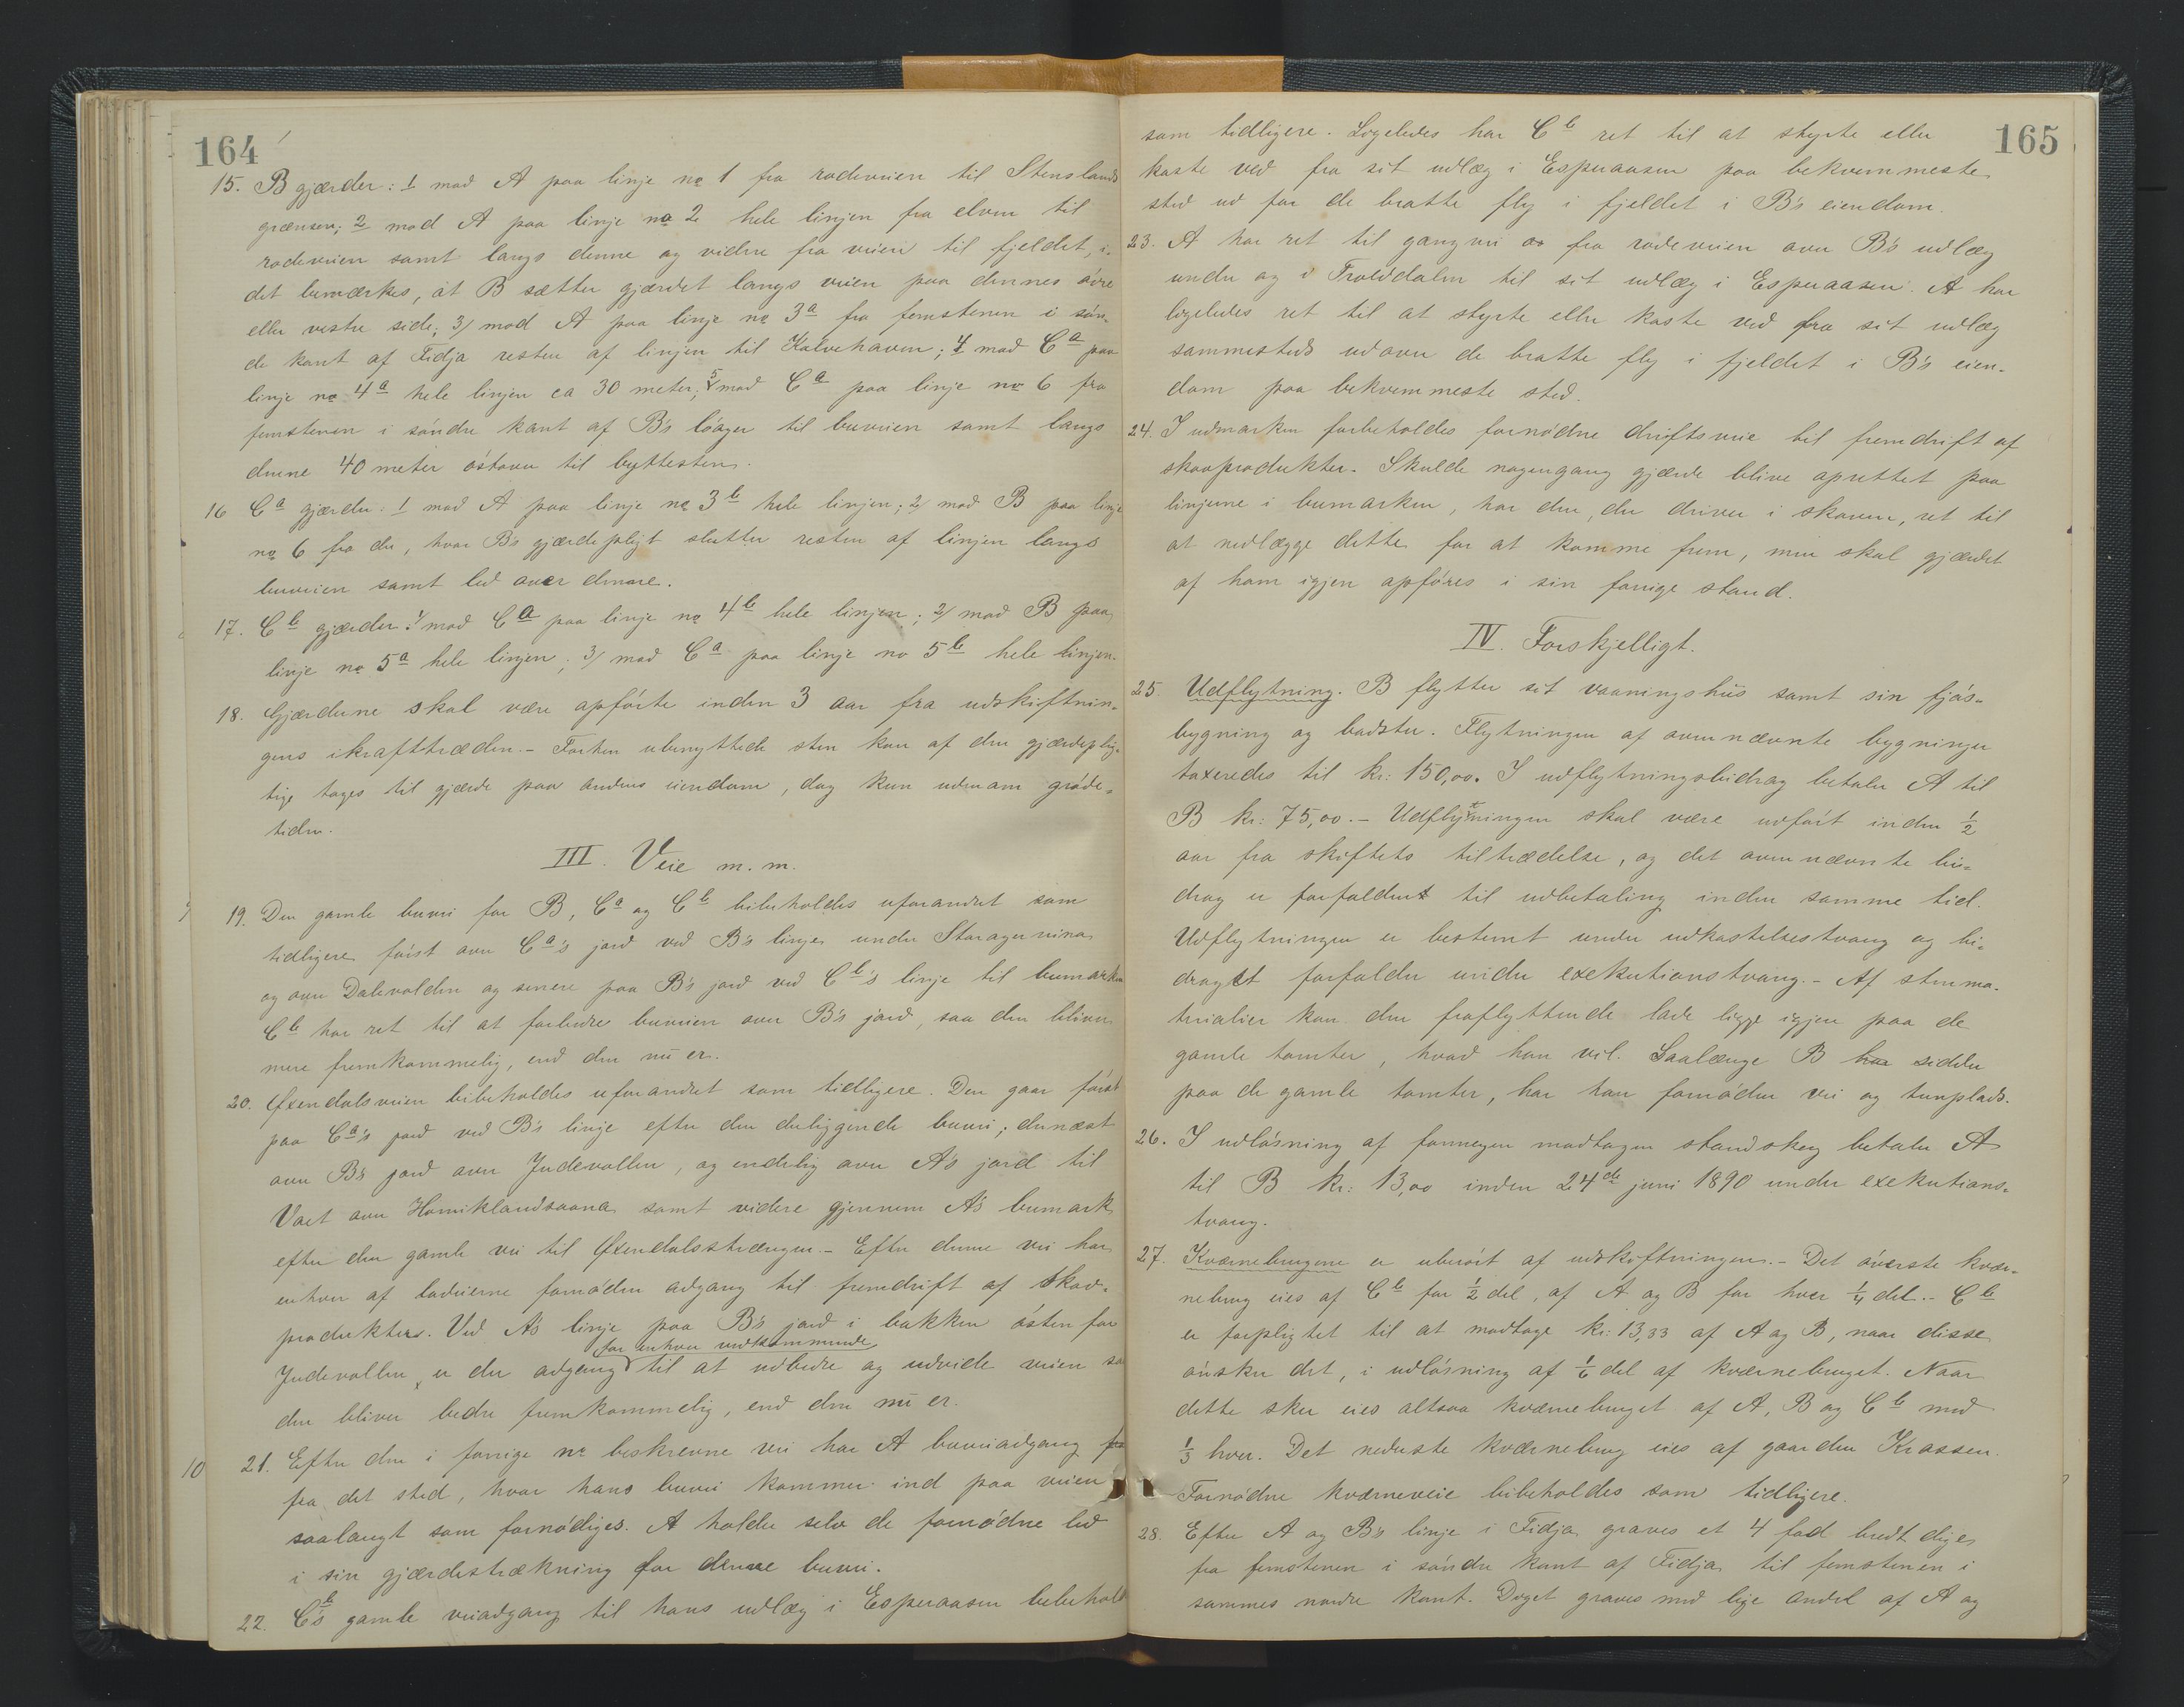 164
15. B gjærder: 1 mod A paa linje no 1 fra rodeveien til Stenslands
grænsen; 2 mod A paa linje no 2 hele linjen fra elven til
rodeveien samt langs denne og videre fra veien til fjeldet, i-
det bemærkes, at B sætter gjærdet langs veien paa dennes øvre
eller vestre side; 3/ mod A paa linje no 3a fra femstenen i søn-
dre kant af Fidja resten af linjen til Kalvehaven; 4 mod Ca paa
linje no 4a hele linjen ca 30 meter; 5 mod Ca paa linje no 6 fra
femstenen i søndre kant af B's løager til buveien samt langs
denne 40 meter østover til byttesten.
16 Ca gjærder: 1 mod A paa linje no 3b hele linjen; 2/ mod B paa linje
no 6 fra der, hvor B's gjærdepligt slutter resten af linjen langs
buveien samt led over denne.
17. Cb gjærder 1/ mod Ca paa linje no 4b hele linjen; 2/ mod B paa
linje no 5a hele linjen; 3/ mod Ca paa linje no 5b hele linjen.
18. Gjærderne skal være opførte inden 3 aar fra udskiftnin-
gens ikrafttræden. – Forhen ubenyttede sten kan af den gjærdeplig-
tige tages til gjærde paa andens eiendom, dog kun udenom grøde-
tiden.
III. Veie m. m.
19. Den gamle buvei for B, Ca og Cb bibeholdes uforandret som
tidligere først over Ca's jord ved B's linje under Storagervina
og over Dalevolden og senere paa B's jord ved Cb's linje til bumarken
Cb har ret til at forbedre buveien over B's jord, saa den bliver
mere fremkommelig, end den nu er.
20. Øxendalsveien bibeholdes uforandret som tidligere. Den gaar først
paa Ca's jord ved B's linje efter den derliggende buvei; dernæst
over B's jord over Indevollen, og endelig over A's jord til
Vaet over Homiklandsaana samt videre gjennem A's bumark
efter den gamle vei til Øxendalsstrængen. – Efter denne vei har
enhver af lodeierne fornøden adgang til fremdrift af skov-
produkter. Ved A's linje paa B's jord i bakken østen for
for enhver vedkommende
Indevollen er der adgang til at udbedre og udvide veien saa
den bliver bedre fremkommelig, end den nu er.
10 21. Efter den i forrige no beskrevne vei har A buveiadgang fra
fra det sted, hvor hans buvei kommer ind paa veien
saalangt som fornødiges. A holder selv de fornødne led
i sin gjærdestrækning for denne buvei.
22. Cb's gamle veiadgang til hans udlæg i Esperaasen bibehold
165
som tidligere. Ligeledes har Cb ret til at styrte eller
kaste ved fra sit udlæg i Esperaasen paa bekvemmeste
sted ud for de bratte fly i fjeldet i B's eiendom.
23. A har ret til gangvei fra rodeveien over B's udlæg
under og i Trolddalen til sit udlæg i Esperaasen. A har
ligeledes ret til at styrte eller kaste ved fra sit udlæg
sammesteds udover de bratte fly i fjeldet i B's eien-
dom paa bekvemmeste sted.
24. I udmarken forbeholdes fornødne driftsveie til fremdrift af
skovprodukter. Skulde nogengang gjærde blive oprettet paa
linjerne i bumarken, har den, der driver i skoven, ret til
at nedlægge dette for at komme frem, men skal gjærdet
af ham igjen opføres i sin forrige stand.
IV. Forskjelligt.
25. Udflytning. B flytter sit vaaningshus samt sin fjøs-
bygning og badstu. Flytningen af ovennævnte bygninger
taxeredes til kr: 150,00. I udflytningsbidrag betaler A til
B kr: 75,00. – Udflytningen skal være udført inden 1/2
aar fra skiftets tiltrædelse, og det ovennævnte bi-
drag er forfaldent til udbetaling inden samme tid.
Udflytningen er bestemt under udkastelsestvang og bi-
draget forfalder under exekutionstvang. – Af stenma-
terialier kan den fraflyttende lade ligge igjen paa de
gamle tomter, hvad han vil. Saalænge B sidder
paa de gamle tomter, har han fornøden vei og tunplads.
26. I udløsning af formeyen modtagen standskog betaler A
til B kr: 13,00 inden 24de juni 1890 under exekutions-
tvang.
27. Kværnebrugene er uberørt af udskiftningen. – Det øverste kvær-
nebrug eies af Cb for 1/2 del, af A og B for hver 1/4 del. – Cb
er forpligtet til at modtage kr: 13,33 af A og B, naar disse
ønsker det, i udløsning af 1/6 del af kværnebruget. Naar
dette sker eies altsaa kværnebruget af A, B og Cb med
1/3 hver. Det nederste kværnebrug eies af gaarden Krossen.
Fornødne kværneveie bibeholdes som tidligere.
28. Efter A og B's linje i Fidja graves et 4 fod bredt dige
fra femstenen i søndre kant af Fidja til femstenen i
sammes nordre kant. Diget graves med lige andel af A og